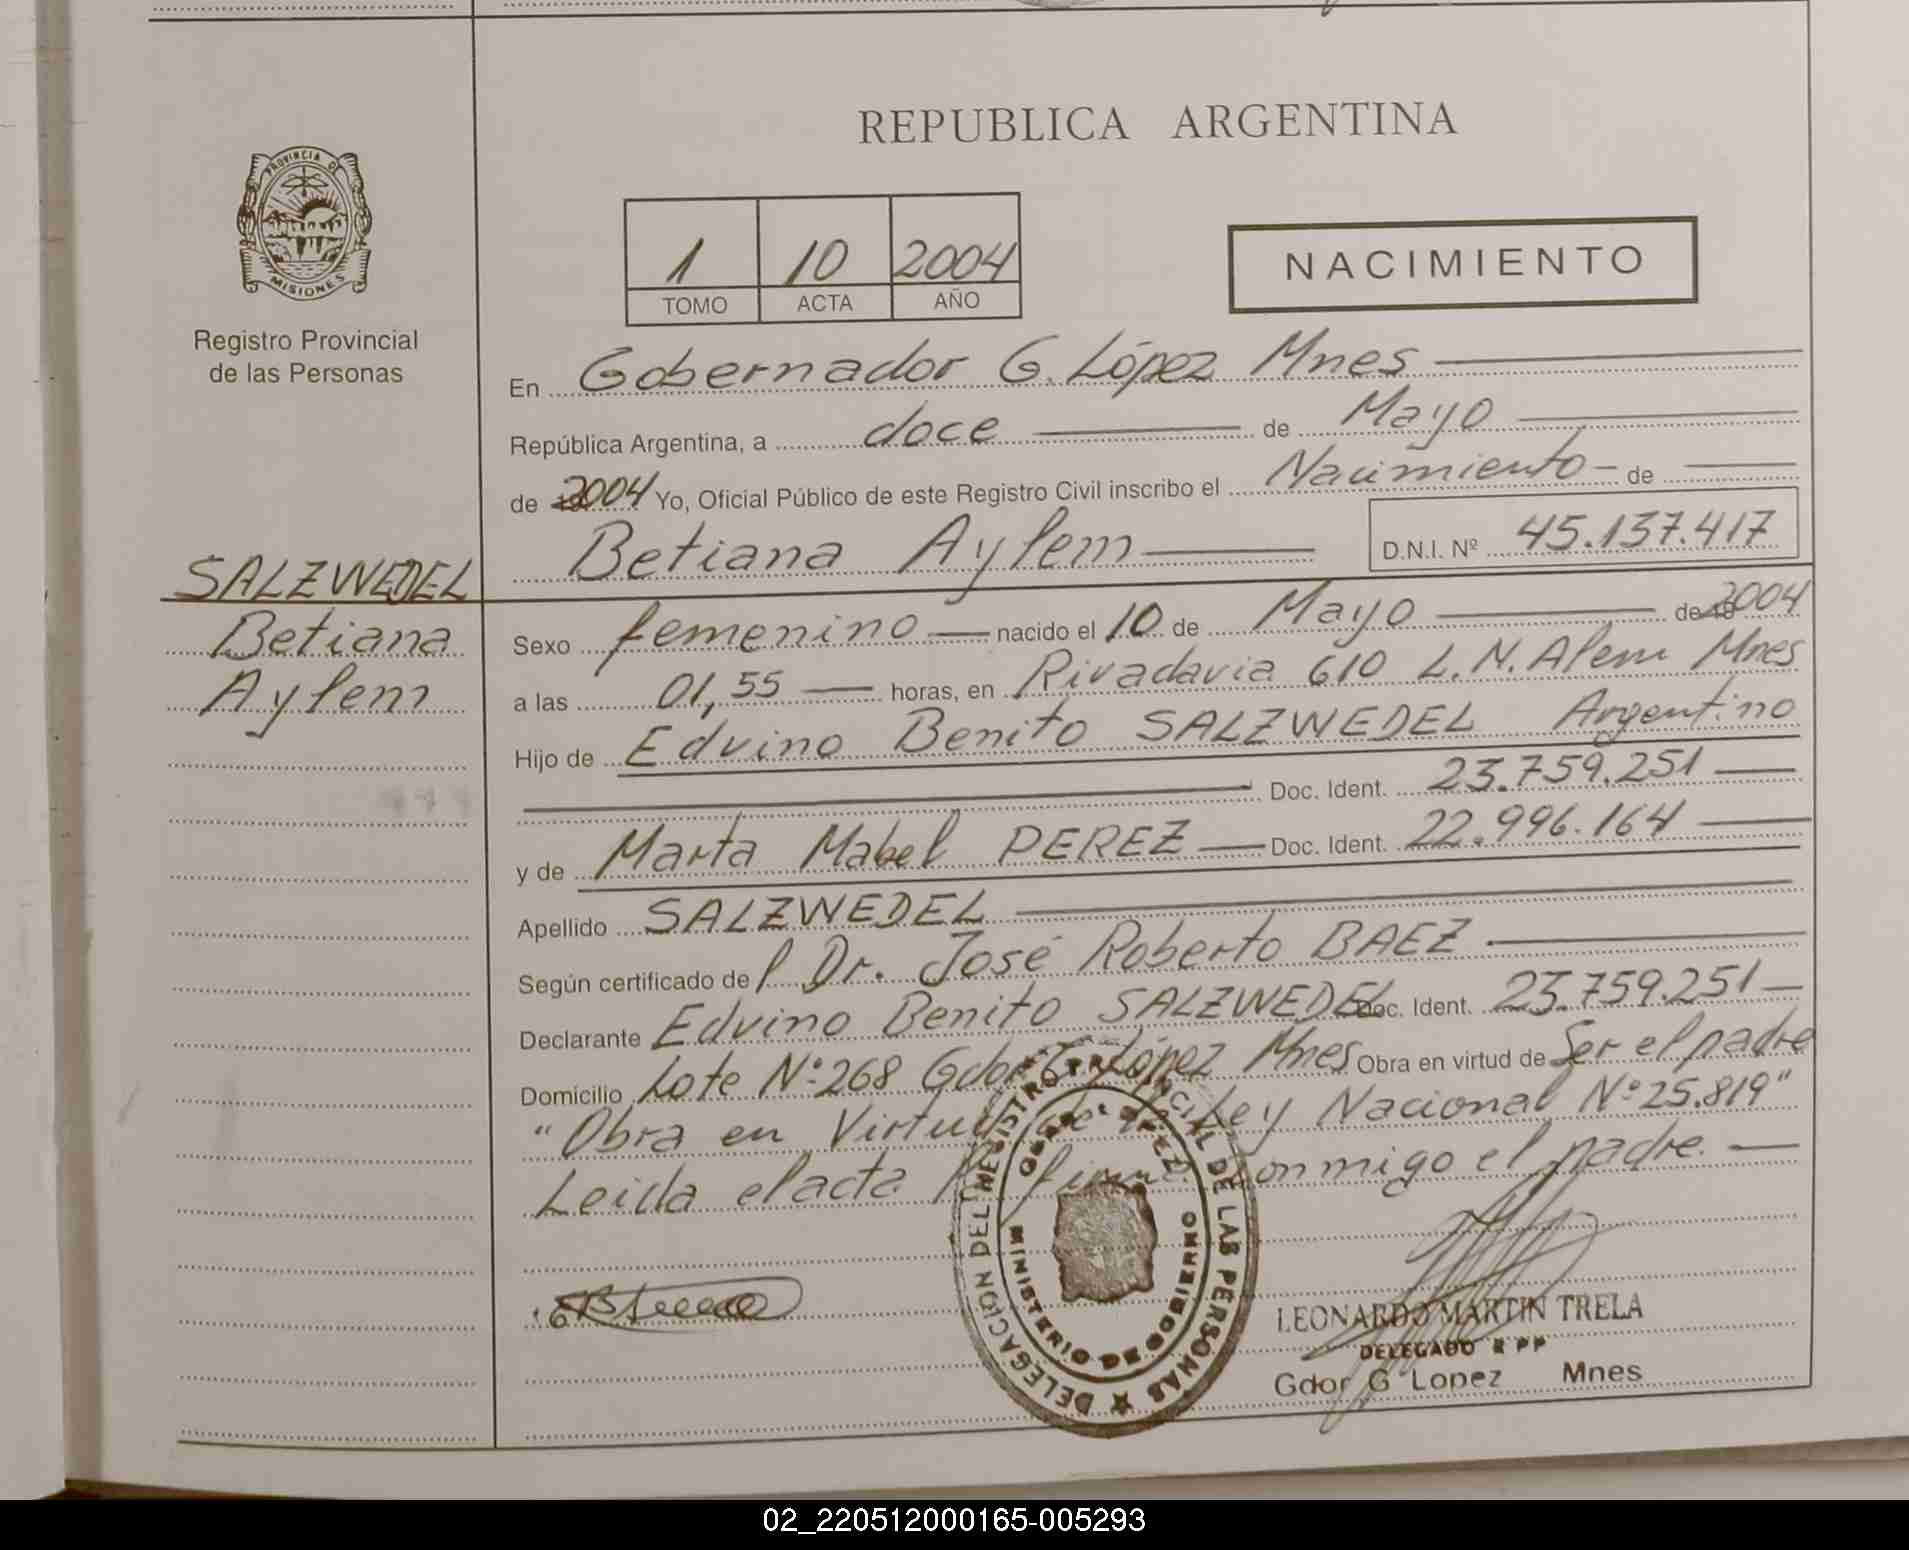 REPUBLICA ARGENTINA
PROVINCIA DE
MISIONES
Registro Provincial
de las Personas
1 10 2004
TOMO ACTA AÑO
NACIMIENTO
En Gobernador G. López Mnes
República Argentina, a doce de Mayo
de 2004 Yo, Oficial Público de este Registro Civil inscribo el Nacimiento de
Betiana Aylem D.N.I. Nº 45.137.417
SALZWEDEL
Betiana
Aylem
Sexo femenino nacido el 10 de Mayo de 2004
a las 01,55 horas, en Rivadavia 610 L.N. Alem Mnes
Hijo de Edvino Benito SALZWEDEL Argentino
Doc. Ident. 23.759.251
y de Marta Mabel PEREZ Doc. Ident. 22.996.164
Apellido SALZWEDEL
Según certificado del Dr. José Roberto BAEZ
Declarante Edvino Benito SALZWEDEL Doc. Ident. 23.759.251
Domicilio Lote Nº 268 Gdor G. López Mnes Obra en virtud de Ser el padre
"Obra en Virtud de la Ley Nacional Nº 25.819"
Leida el acta la firma conmigo el padre.
DELEGACIÓN DEL REGISTRO PROVINCIAL DE LAS PERSONAS
MINISTERIO DE GOBIERNO
LEONARDO MARTIN TRELA
DELEGADO R PP
Gdor G Lopez Mnes
02_220512000165-005293